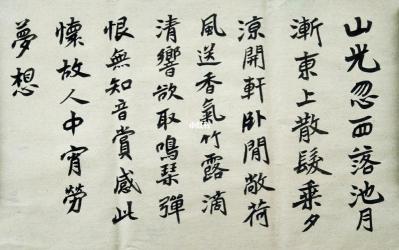 山光忽西落池月
漸東上散髮乘夕
涼開軒卧閒敞荷
風送香氣竹露滴
清響欲取鳴琴彈
恨無知音賞感此
懷故人中宵勞
夢想